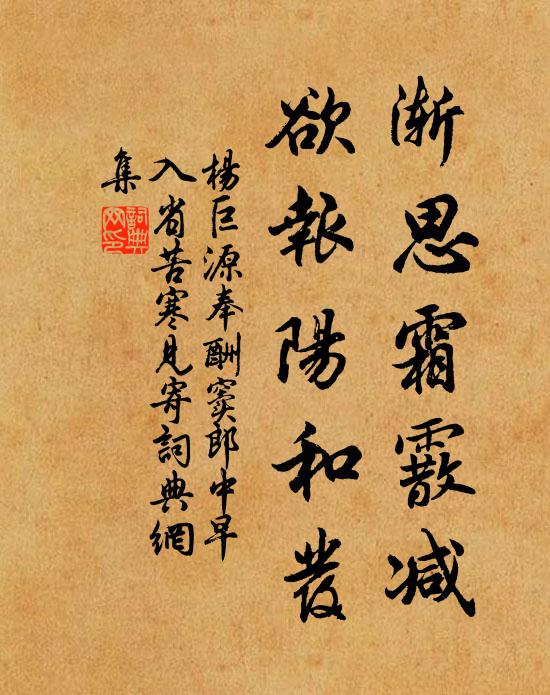 渐思霜霰减
欲報陽和發
楊巨源奉酬窦郎中早
入省苦寒見寄詞典網
集
詞典
网印